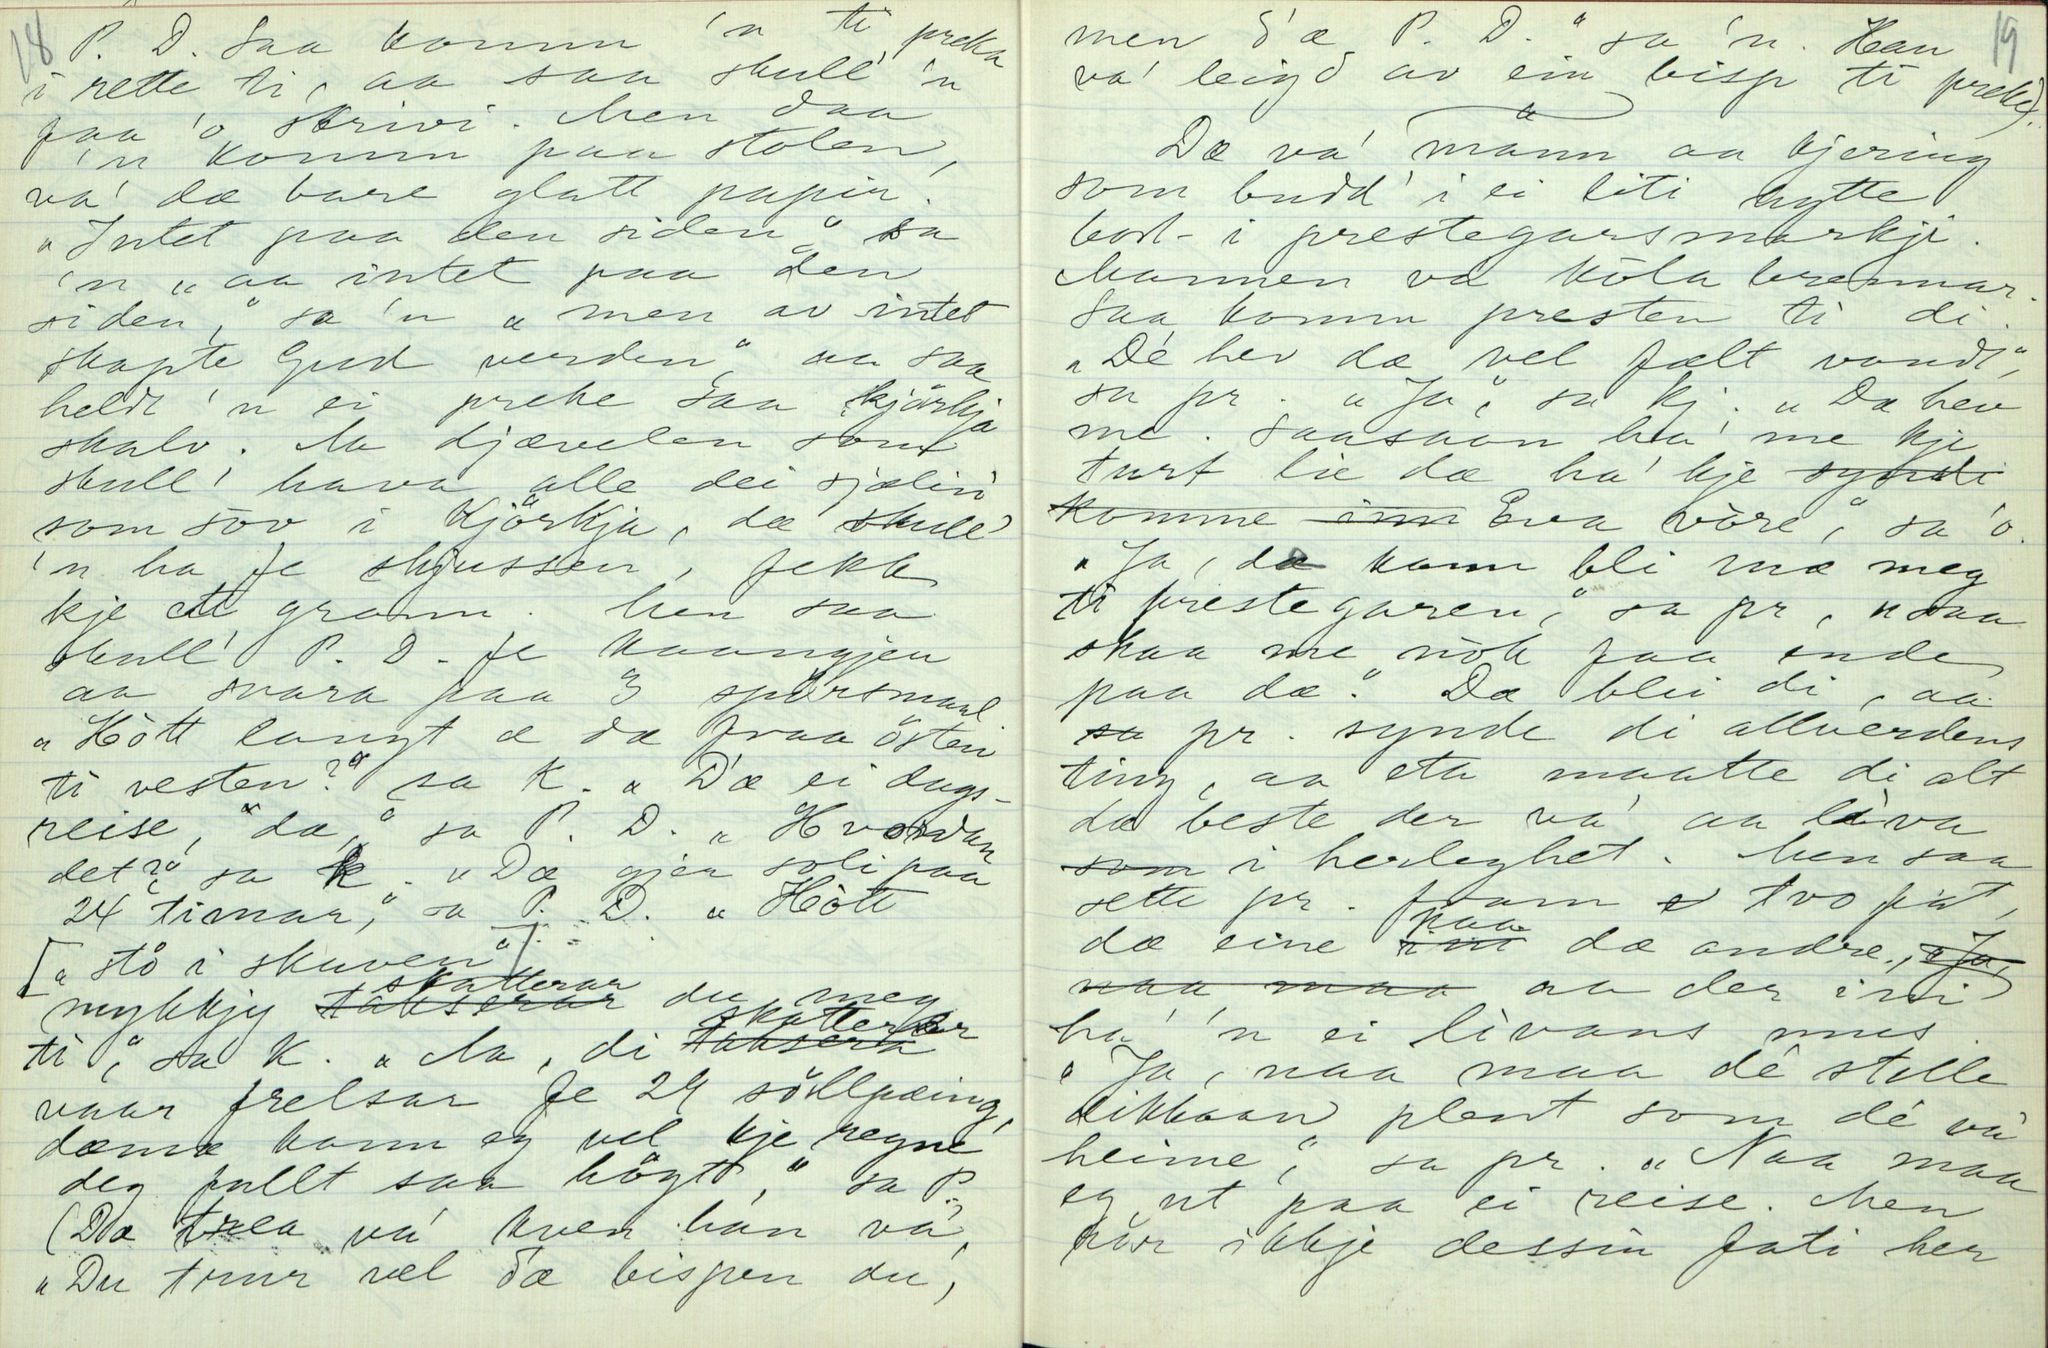 18
P. D. Saa komm 'n ti preka
i rette ti, aa saa skull' 'n
faa 'o skrivi. Men daa
'n komm paa stolen,
va' dæ bare glatt papir.
„Intet paa den siden“ sa
'n „aa intet paa den
siden,“ sa 'n „men av intet
skapte Gud verden“, aa saa
heldt 'n ei preke saa kjörkja
skalv. Aa djævelen som
skull' hava alle dei sjælin
som sov i kjörkja, dæ skulle
'n ha fe skjussen, fekk
kje ei grann. Men saa
skull' P. D. fe kaangjen
aa svara paa 3 spörsmaal.
„Hòtt langt æ dæ fraa östen
ti vesten?“ sa K. „D'æ ei dags-
reise, dæ,“ sa P. D. „Hvordan
det?“ sa K. „Dæ gjer soli paa
24 timar,“ sa P. D. „Hòtt
[„stö i skuven“]
mykkjy takserar skatterar du meg
ti,“ sa K. „Aa, di taksera skatterar
vaar frelsar fe 24 söllpæing,
dæmæ kann eg vel kje regne
deg fullt saa högt,“ sa P.
(Dæ trea va' kven han va?
„Du trur vel d'æ bispen du,
19
men d'æ P. D.“ sa 'n. Han
va' leigd av ein bisp ti preke).
Dæ va' mann aa kjering
som budd' i ei liti hytte
bort i prestegarsmarkji.
Mannen va kòlabrennar.
Saa komm presten ti di.
„Dé hev dæ vel fælt vondt“,
sa pr. „Ja“, sa kj. „Dæ hev
me. Saasaan ha' me kje
turt lie dæ ha' kje syndi
komme inn Eva vòre,“ sa 'o.
„Ja, dæ kann bli mæ meg
ti prestegaren,“ sa pr, „saa
skaa me nòk faa ende
paa dæ.“ Dæ blei di, aa
sa pr. synde di allverdens
ting, aa eta maatte di alt
dæ beste der va' aa lìva
som i herleghet. Men saa
sette pr. fram e tvo fat,
dæ eine i mi paa dæ andre, „Ja,
naa maa aa der inni
ha' 'n ei lìvans mus.
„Ja, naa maa dé stelle
dikkaan plent som dé va'
heime,“ sa pr. „Naa maa
eg ut paa ei reise. Men
rör ikkje dessin fati her